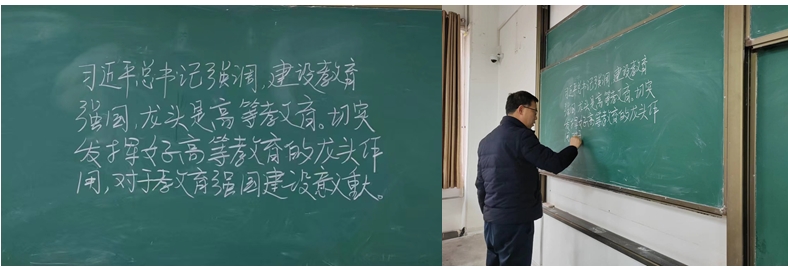 习近平总书记强调,建设教育
强国,龙头是高等教育。切实
发挥好高等教育的龙头作
用,对于教育强国建设意义重大。
习近平总书记强调,建设教育
强国,龙头是高等教育。切实
发挥好高等教育的龙头作